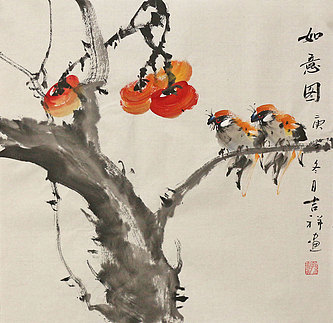 如意图
庚冬月吉祥画